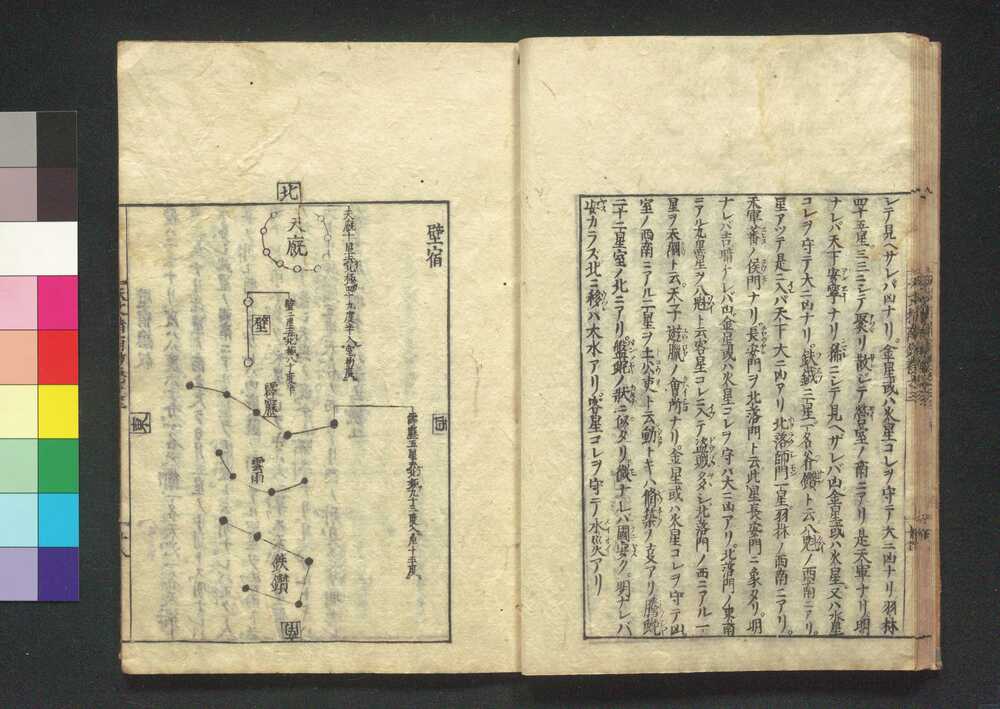 シテ見ヘサレバ凶ナリ。金星或ハ火星コレヲ守テ大ニ凶ナリ羽林
四十五星三三ニシテ聚リ散シテ營室ノ南ニアリ是天軍ナリ明
ナレバ天下安寧ナリ稀ニシテ見ヘザレバ凶金星或ハ火星又ハ水星
コレヲ守テ大ニ凶ナリ。鈇鉞三星一名斧鉞ト云八魁ノ西南ニアリ。
星アツテ是ニ入バ天下大ニ凶アリ北落師門一星羽林ノ西南ニアリ。
天軍蕃ノ侯門ナリ長安門ヲ北落門ト云此星長安門ニ象タリ。明
ナレバ吉暗ナレバ凶金星或ハ火星コレヲ守バ大ニ凶アリ。北落門ノ東南
ニアル九黒星ヲ八魁ト云客星コレニ入テ盗賊多シ北落門ノ西ニアル一
星ヲ天綱ト云天子遊獵ノ會所ナリ金星或ハ火星コレヲ守テ凶
室ノ西南ニアル二星ヲ土公吏ト云動トキハ修築ノ支アリ騰蛇
二十二星室ノ北ニアリ盤蛇ノ状ニ似タリ微ナレバ國安ク明ナレバ
安カラズ北ニ移バ大水アリ客星コレヲ守テ水災アリ
壁宿
北
天廐
天廐十星去北極四十九度半入室初度
壁
壁二星去北極八十度半
西
霹靂五星去北極九十三度入危十五度
霹靂
雲雨
東
鈇鑕
南